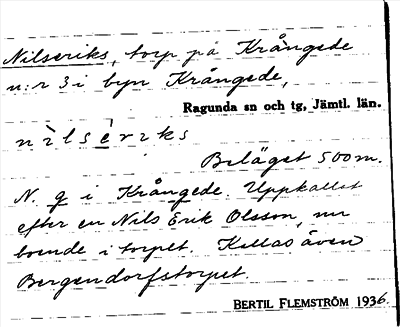 Nilseriks, torp på Krångede
n:r 3 i byn Krångede,
Ragunda sn och tg, Jämtl. län.
nìlsèriks
Beläget 500 m.
N. g i Krångede. Uppkallat
efter en Nils Erik Olsson, nu
boende i torpet. Kallas även
Bergendorfstorpet.
BERTIL FLEMSTRÖM 1936.